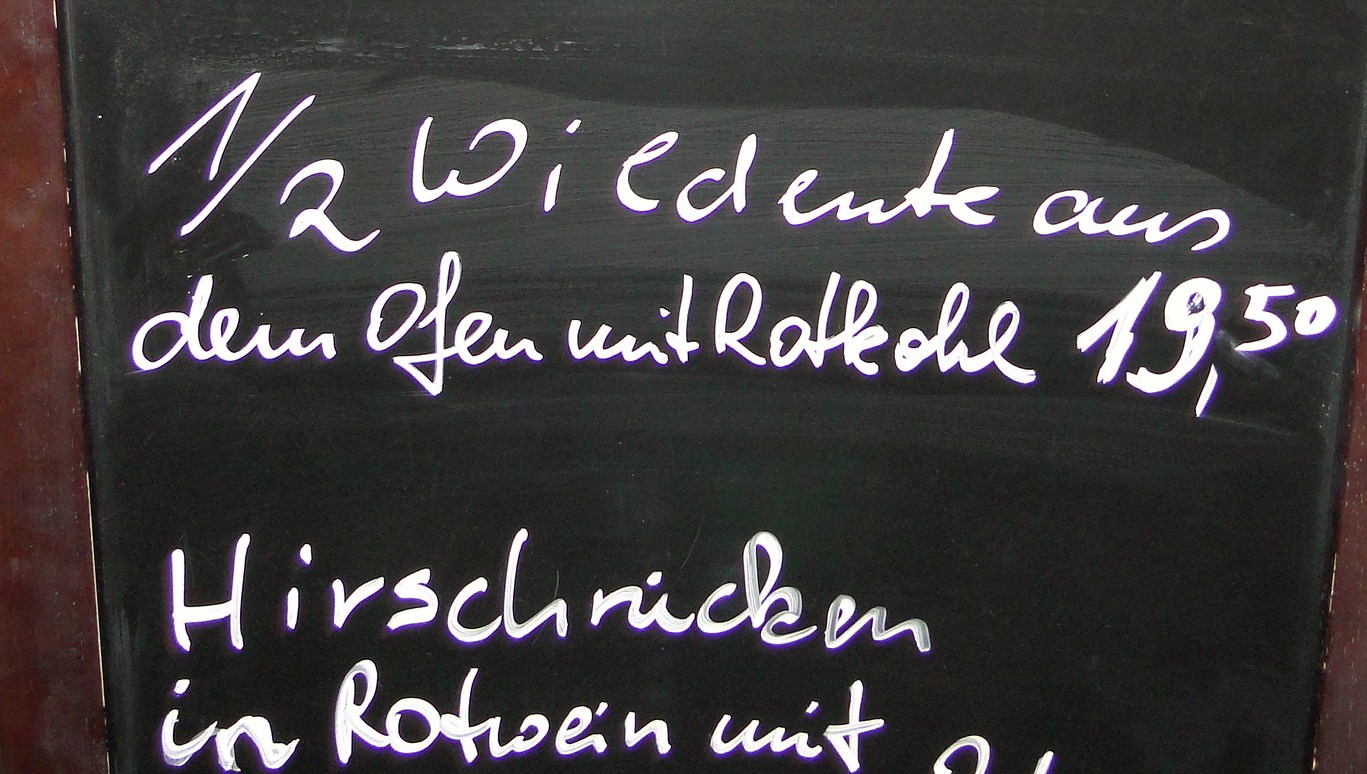 1/2 Wildente aus
dem Ofen mit Rotkohl 19,50
Hirschrücken
in Rotwein mit